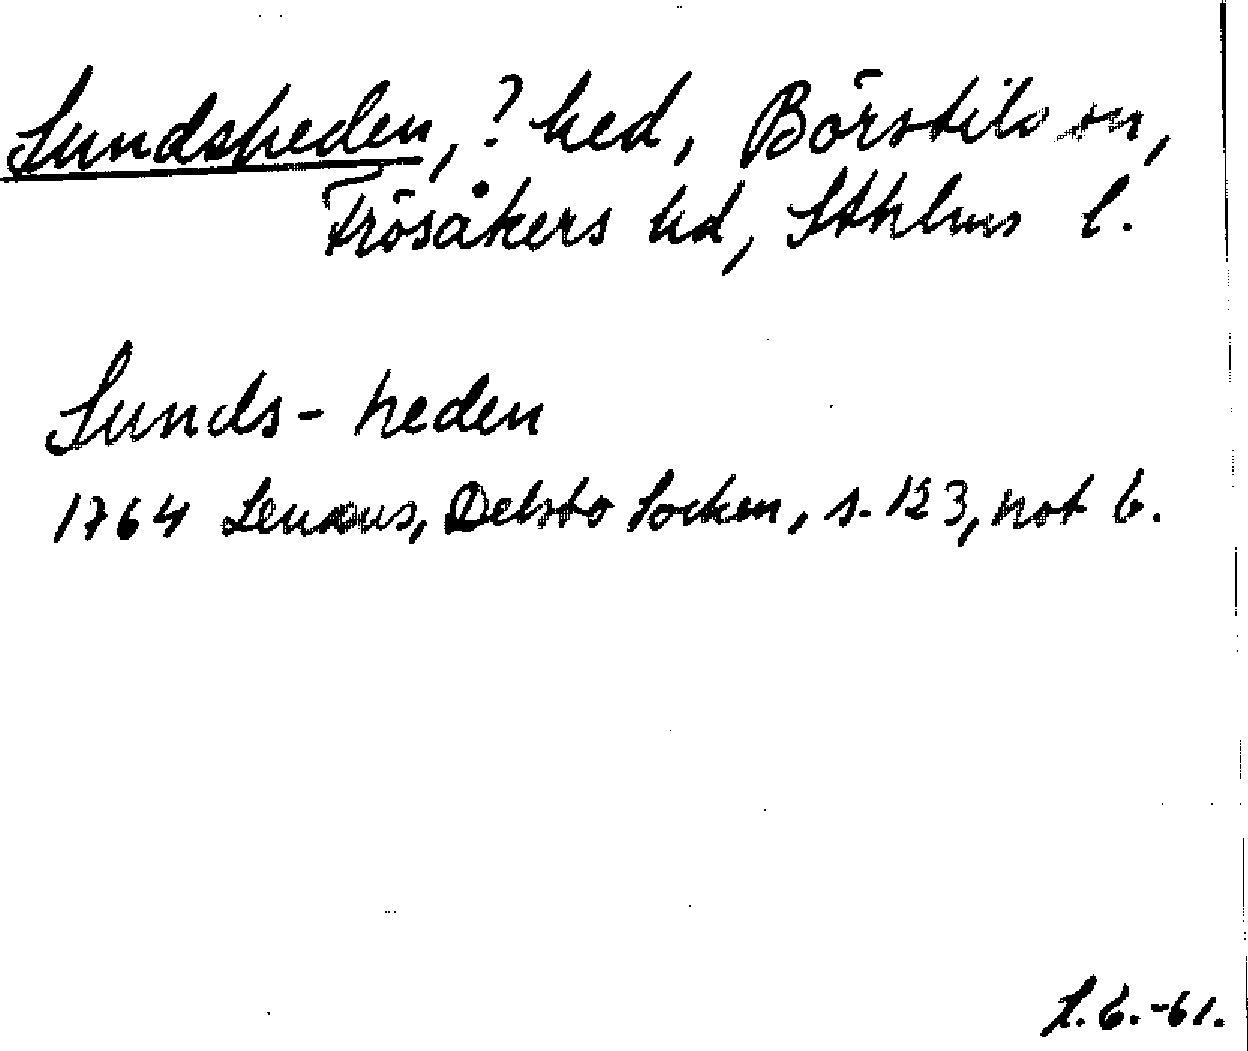 Sundsheden, ? hed, Börstils sn,
Frösåkers hd, Sthlms l.
Sunds-heden
1764 Lenæus, Delsbo Socken, s. 123, not b.
L.G.-61.